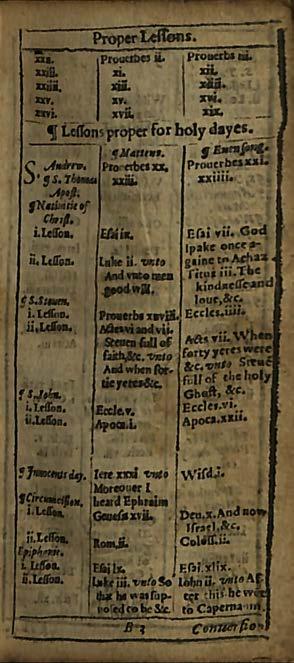 Proper Lessons.
xxii. Prouerbes ii. Prouerbs iii.
xxiii. xi. xii.
xxiiii. xiii. xiiii.
xxv. xv. xvi.
xxvi. xvii. xix.
¶ Lessons proper for holy dayes.
¶ Mattens. ¶ Euensong.
S. Andrew. Prouerbes xx. Prouerbes xxi.
¶ S. Thomas xxiii. xxiiii.
Apost.
¶ Natiuitie of
Christ.
i. Lesson. Esai ix. Esai vii. God
spake once a-
ii. Lesson. Luke ii. vnto gaine to Achaz
And vnto men Titus iii. The
good will. kindnesse and
loue, &c.
¶ S. Steuen.
i. Lesson. Prouerbs xxviii. Eccles. iiii.
ii. Lesson. Actes vi and vii. Acts vii. When
Steuen full of forty yeres were
faith, &c. vnto &c. vnto Steuē
And when for- full of the holy
tie yeres &c. Ghost, &c.
¶ S. John.
i. Lesson. Eccle. v. Eccles. vi.
ii. Lesson. Apoca. i. Apoca. xxii.
¶ Innocents day. Iere xxxi vnto Wisd. i.
Moreouer I
¶ Circumcision. heard Ephraim
i. Lesson. Genesis xvii. Deu. x. And now
Israel, &c.
ii. Lesson. Rom. ii. Coloss. ii.
Epiphanie.
i. Lesson. Esai lx. Esai. xlix.
ii. Lesson. Luke iii. vnto So Iohn ii. vnto Af-
that he was sup- ter this he went
posed to be &c. to Capernaum.
B 3 Conuersion